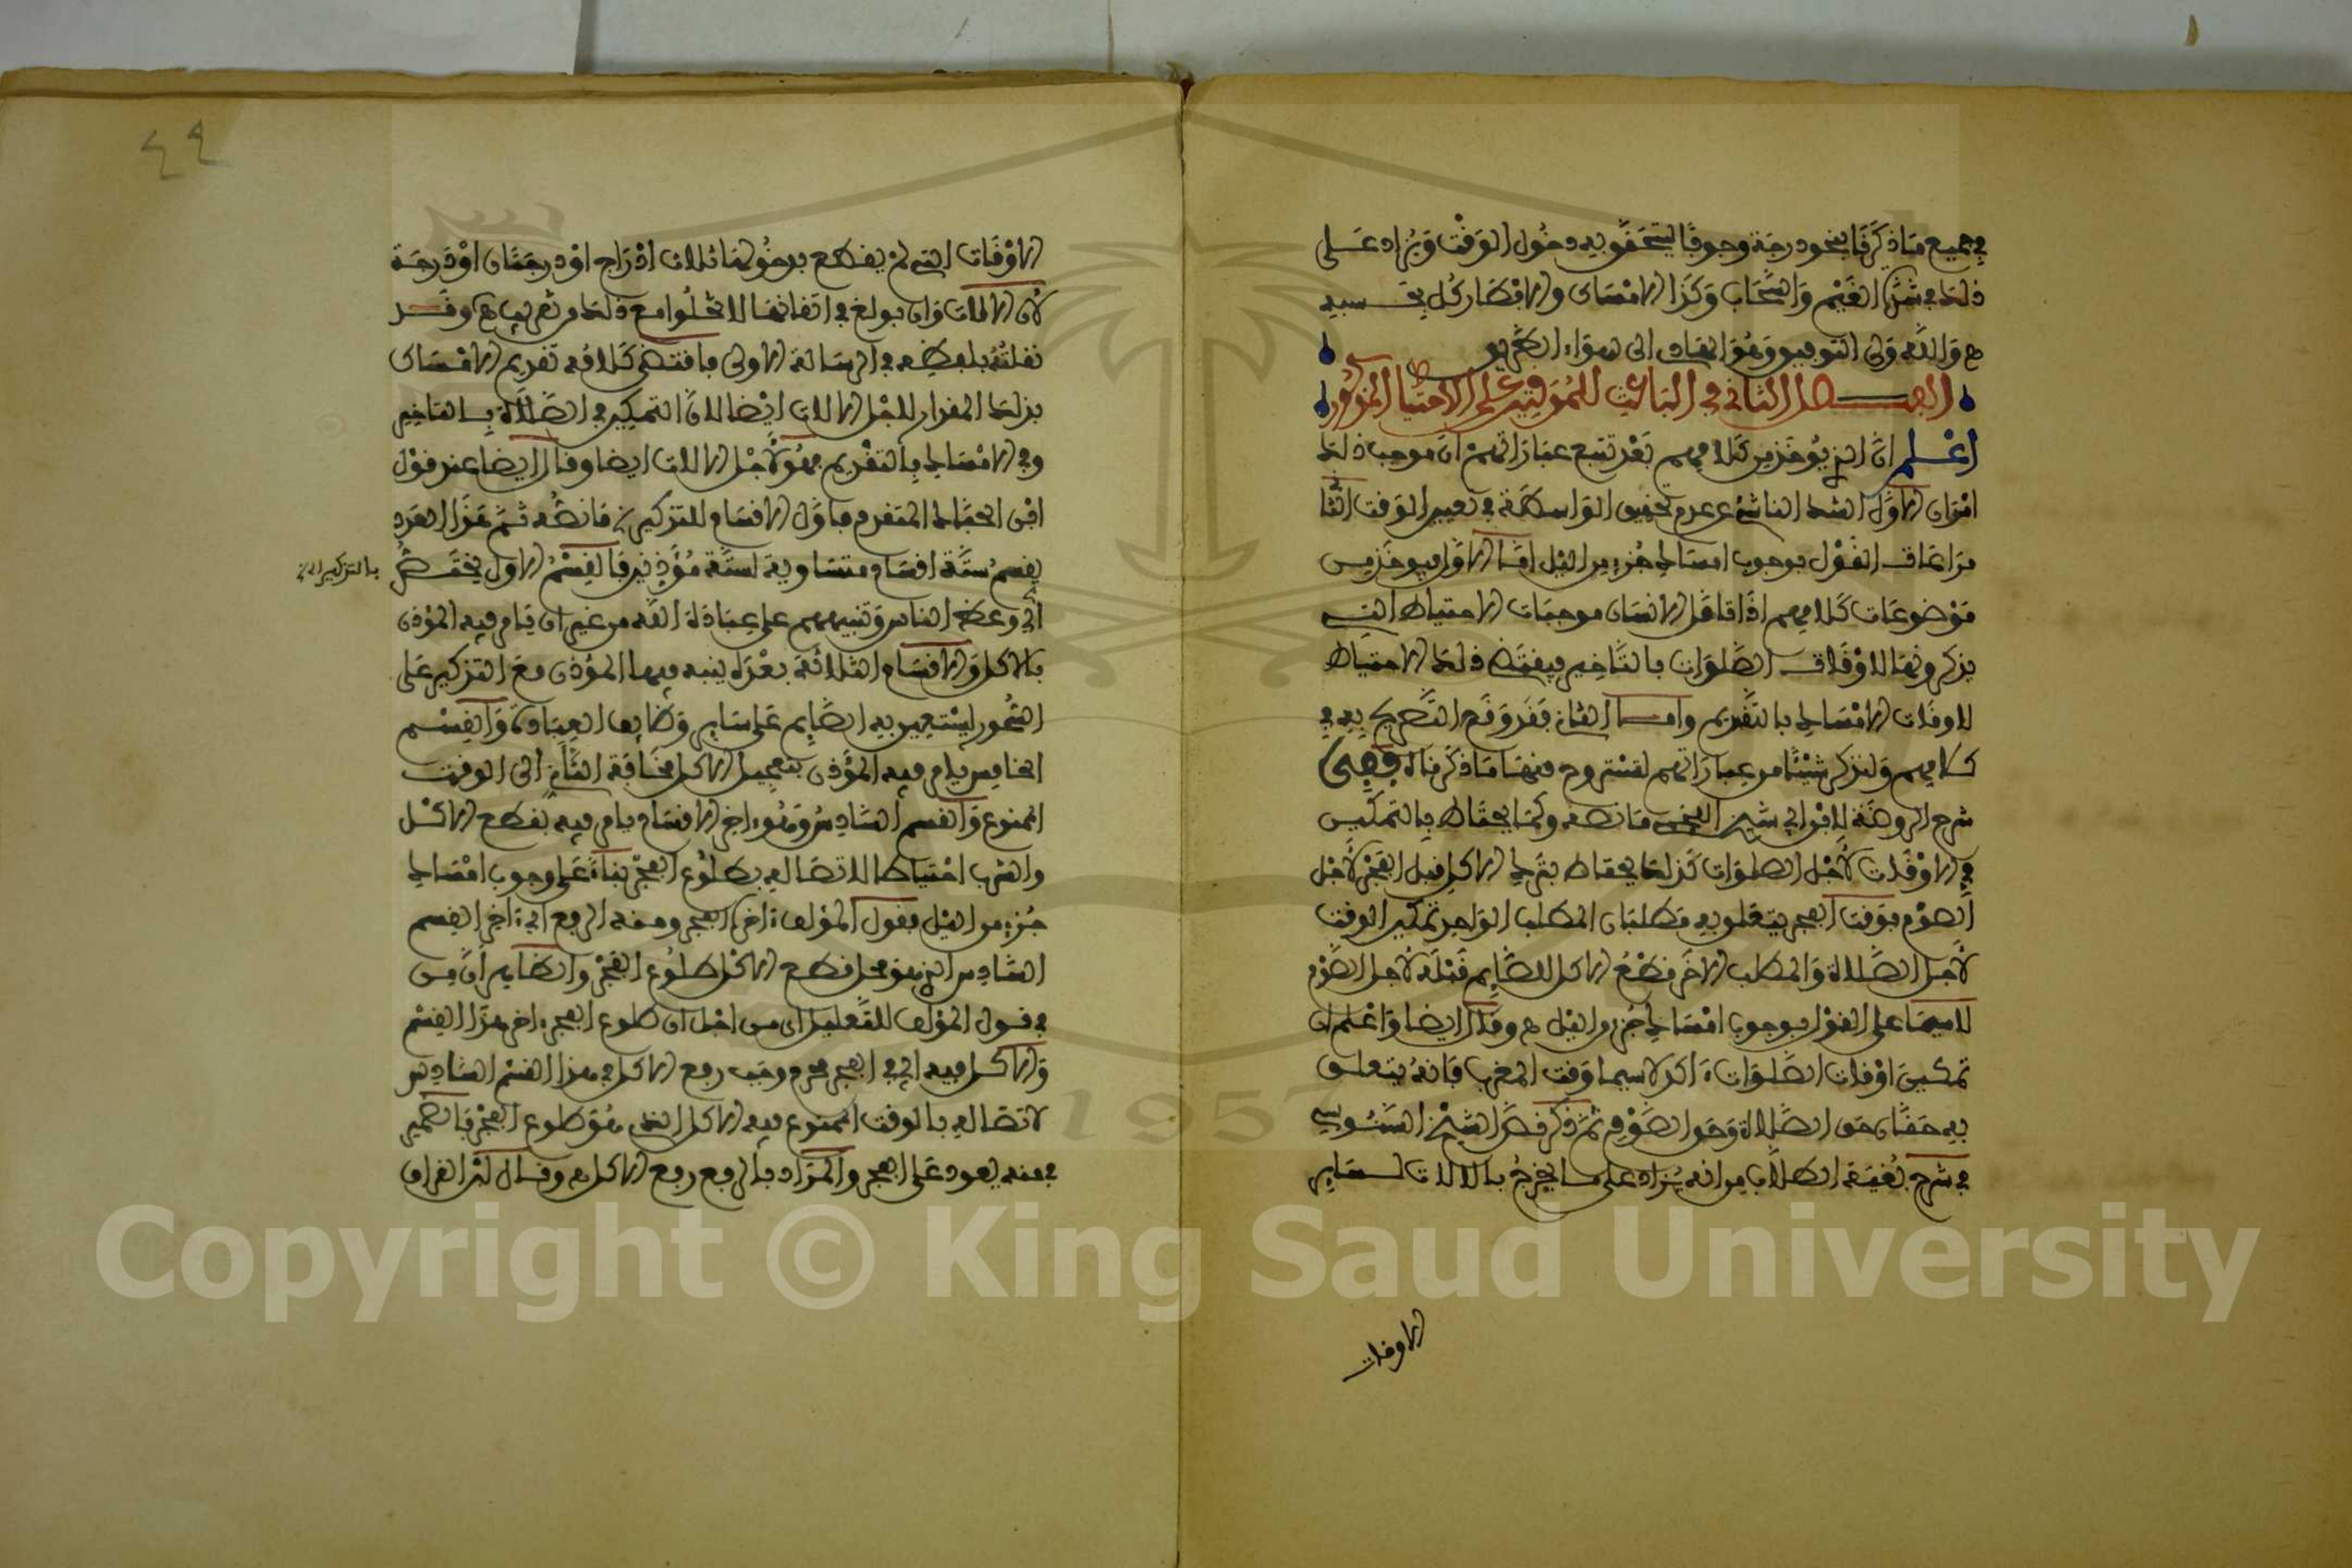 في جميع ما ذكرنا بنحو درجة وجوبا ليتحقق به دخول الوقت ويزاد على
ذلك في شدة الغيم والسحاب وكذا الامساك والافطار كل بحسبه
ه والله ولي التوفيق وهو الهادي الى سواء الطريق
الفصل الثاني في الباعث للموقتين على الاحتياط المذكور
اعلم ان الذي يوخذ من كلامهم بعد تتبع عباراتهم ان موجب ذلك
امران الاول الشك الناشئ عن عدم تحقيق الواسطة في تعيين الوقت الثا
مراعات القول بوجوب امساك جزء من اليل اما الاول فيوخذ من
موضوعات كلامهم اذا تامل الانسان موجبات الاحتياط التي
يذكرونها لاوقات الصلوات بالتاخير فيقتضي ذلك الاحتياط
لاوقات الامساك بالتقديم واما الثاني فقد وقع التصريح به في
كلامهم ولنذكر شيئا من عباراتهم لتستروح معها ما ذكرناه ففي
شرح الروضة للافراني شيخ ما نصه وكما يحتاط بالتمكين
في الاوقات لاجل الصلوات كذلك يحتاط بترك الاكل قبل الفجر لاجل
الصوم فوقت الفجر يتعلق به مطلبان المطلب الواحد تمكين الوقت
لاجل الصلاة والمطلب الاخر قطع الاكل للصائم قبله لاجل الصوم
لاسيما على القول بوجوب امساك جزء من اليل ه وقال ايضا واعلم ان
تمكين اوقات الصلوات اكد لاسيما وقت المغرب فانه يتعلق
به حقان حق الصلاة وحق الصوم ثم ذكر نص الشيخ السنوسي
في شرح بغية الطلاب من انه يزاد على ما يخرج بالالات لسائر
الاوقات
٤٤
الاوقات التي لم يقطع بدخولها ثلاث ادراج او درجتان او درجة
لان الالات وان بولغ في اتقانها لا تخلوا مع ذلك من تقريب ه وقد
نقلته بلفظه في الرسالة الاولى فاقتضى كلامه تقديم الامساك
بذلك المقدار لاجل الالات ايضا لان التمكين في الصلاة بالتاخير
وفي الامساك بالتقديم فهو لاجل الالات ايضا وقال ايضا عند قول
ابن الحباك المتقدم فاول الاقسام للتذكير ما نصه ثم هذا العدد
يقسم ستة اقسام متساوية لستة مؤذنين فالقسم الاول يختص
بالتذكير اي
اي وعظ الناس وتنبيههم على عبادة الله من غير ان يامر فيه المؤذن
بالاكل والاقسام الثلاثة بعده ينبه فيها المؤذن مع التذكير على
السحور ليستعين به الصايم على ساير وظايف العبادة والقسم
الخامس يامر فيه المؤذن بتعجيل الاكل مخافة الى الوقت
الممنوع والقسم السادس وهو اخر الاقسام يامر فيه بقطع الاكل
والشرب احتياطا لاتصاله بطلوع الفجر بناء على وجوب امساك
جزء من اليل فقول المؤلف اخرا الفجر ومنه الرفع اي اخر القسم
السادس الذي هو محل قطع الاكل طلوع الفجر والظاهر ان من
في قول المؤلف للتعليل اي من اجل ان طلوع الفجر اخر هذا القسم
والاكل فيه اي في الفجر محرم وجب رفع الاكل في هذا القسم السادس
لاتصاله بالوقت الممنوع فيه الاكل الذي هو طلوع الفجر فالضمير
في منه يعود على الفجر والمراد بالرفع رفع الاكل ه وقال القراف